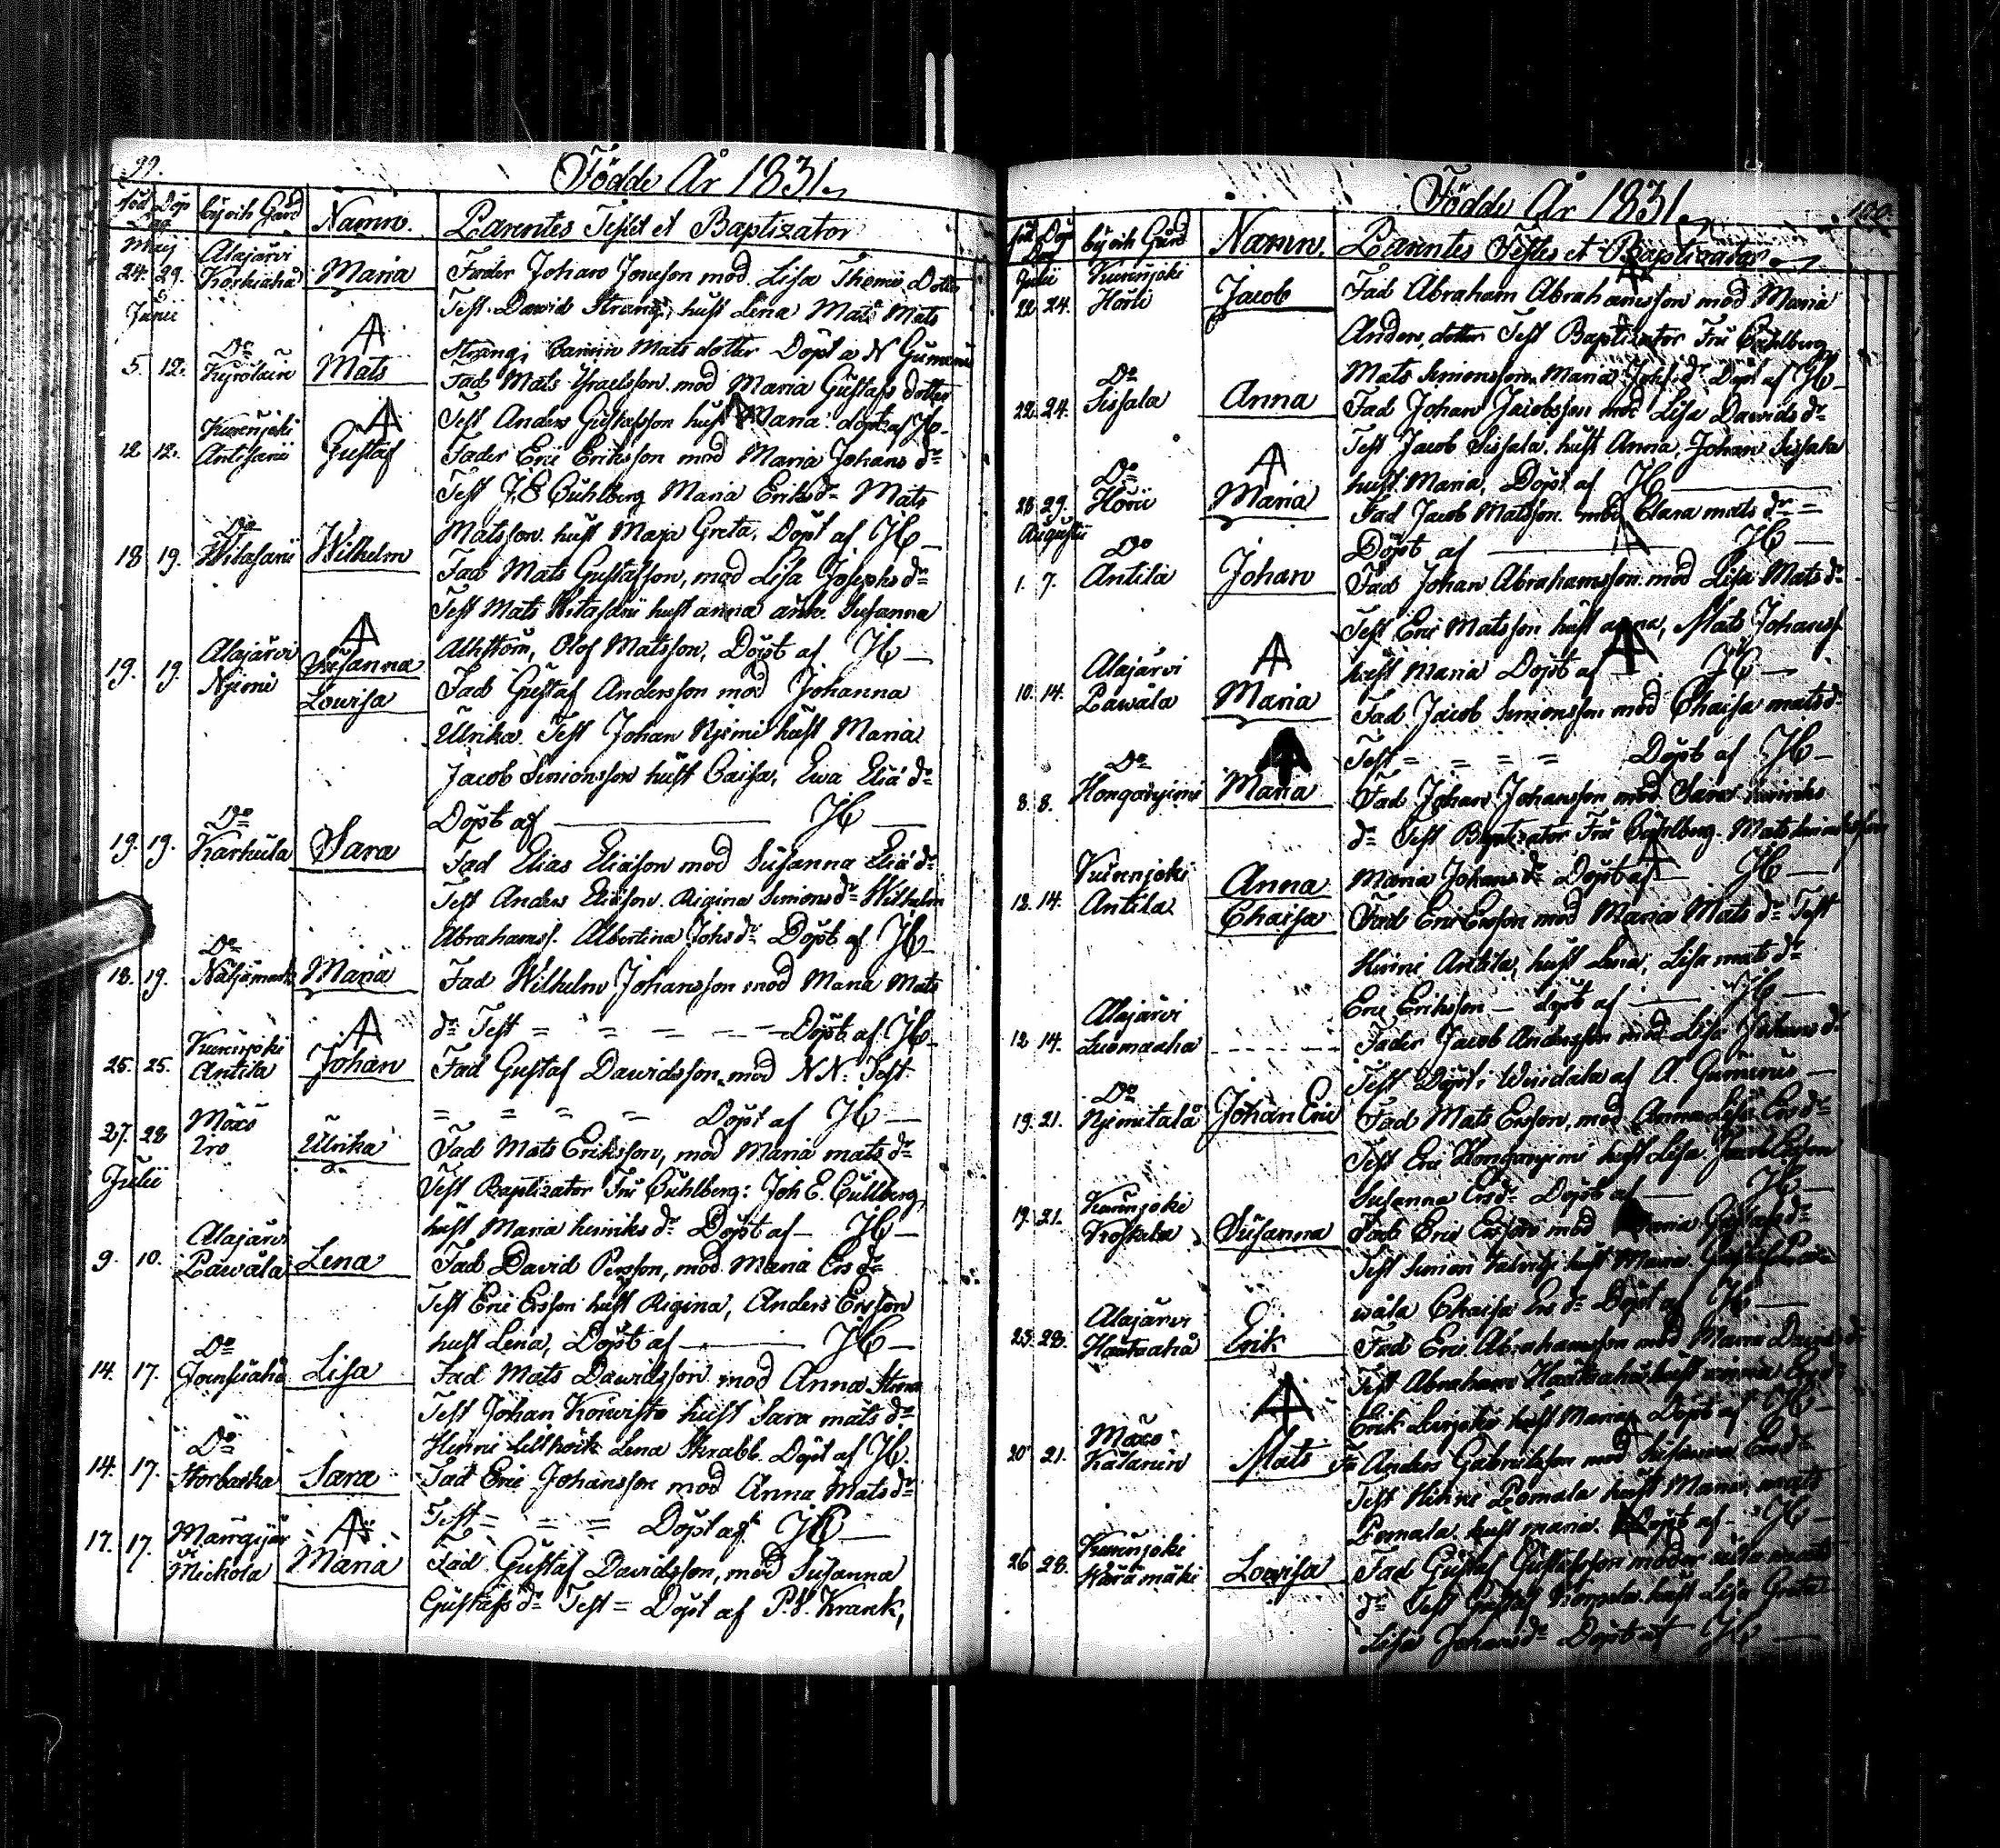 99.
Födde År 1831.
född Dop
Dag
by och Gård
Namn.
Parentes Testes et Baptizator
Maij
Alajärvi
24. 29. Koskiaho Maria Fader Johan Jonesson mod. Lisa Thomæ Dotter
Test. David Strang, hust Lena Mats Mats
Junii
Strang, Mats dotter Döpt a N Gumerus
5. 12. Do Kyrölain Mats Fad Mats Israelsson mod Maria Gustafs dotter
Test Anders Gustafsson hust Maria döpt af JH
Kurenjoki
12 12. Antisarii Gustaf Fader Eric Eriksson mod Maria Johans dr
Test J E Cuhlberg Maria Eriks dr Mats
Matsson hust Maja Greta, Döpt af JH
18 19. Do Witasarii Wilhelm Fad Mats Gustafsson, mod Lisa Josephs dr
Test Mats Witasarii hust anna änk. Susanna
Ahlström, Olof Matsson, Döpt af JH
Alajärvi
19. 19. Njemi Susanna Lovisa Fad Gustaf Andersson mod Johanna
Ulrika. Test Johan Njemi hust Maria
Jacob Simonsson hust Caisa, Ewa Eliæ dr
Döpt af JH
19. 19. Do Karhula Sara Fad Elias Eliasson mod Susanna Eliæ dr
Test Anders Eliasson. Rigina Simons dr Wilhelm
Abrahamss. Albertina Johs dr Döpt af JH
18. 19. Do Maria Fad Wilhelm Johansson mod Maria Mats
dr Test = = = = Döpt af JH
Kurenjoki
25. 25. Antila Johan Fad Gustaf Davidsson, mod N N: Test
= = = = Döpt af JH
Mäxö
27. 28 Iro Ulrika Fad Mats Eriksson, mod Maria mats dr
Julii
Test Baptizator Fru Cuhlberg: Joh E. Cullberg,
hust Maria henriks dr Döpt af JH
Alajärvi
9. 10. Pawåla Lena Fad David Persson, mod Maria Ers dr
Test Eric Ersson hust Rigina, Anders Ersson
hust Lena, Döpt af JH
14. 17. Do Lisa Fad Mats Davidsson mod Anna
Test Johan Koiwisto hust Sara mats dr
Lena Skrabb. Döpt af JH.
14. 17. Do Storbacka Sara Fad Eric Johansson mod Anna Mats dr
Test = = = Döpt af JH
17. 17. Mickola Maria Fad Gustaf Davidsson, mod Susanna
Gustafs dr Test = Döpt af P. V. Krank,
100.
Födde År 1831
född Dop
Dag
by och Gård
Namn.
Parentes Testes et Baptizator
Julii Kurenjoki
22 24. Jacob Fad Abraham Abrahamsson mod Maria
Anders, dotter Test Baptizator Fru Cuhlberg
Mats Simonsson Maria Johs dr Döpt af JH
22 24. Do Sissala Anna Fad Johan Jacobsson mod Lisa Davids dr
Test Jacob Sissala, hust Anna, Johan Sissala
hust Maria, Döpt af JH
28 29. Do Maria Fad Jacob Matsson mod Clara mats dr =
Augusti
Döpt af JH
1. 7. Do Antila Johan Fad Johan Abrahamsson mod Lisa Mats dr
Test Eric Matsson hust anna, Mats Johanss
hust Maria Döpt af JH
Alajärvi
10. 14. Pawåla Maria Fad Jacob Simonsson mod Chaisa mats dr
Test = = = = Döpt af JH
8. 8. Do Hongarjemi Maria Fad Johan Johansson mod Sara Henriks
dr Test Baptizator Fru Cuhlberg
Maria Johans dr Döpt af JH
Kurenjoki
12. 14. Antila Anna Chaisa Fad Eric Ersson mod Maria Mats dr Test
Antila, hust Lena, Lisa mats dr
Eric Eriksson döpt af JH
Alajärvi
12 14. Luomaaho Fader Jacob Andersson mod Lisa Johans dr
Test Döpt i Windala af A. Gumerus
19. 21. Do Njemitalå Johan Eric Fad Mats Ersson, mod Anna Lisa Ers dr
Test Eric Hongarjemi hust Lisa
Susanna Ers dr Döpt af JH
Kurenjoki
19. 21. Susanna Fad Eric Ersson mod Maria Gustafs dr
Test Simon hust Maria
wåla Chaisa Ers dr Döpt af JH
Alajärvi
23. 28. Hautaaho Erik Fad Eric Abrahamsson mod Maria Davids dr
Test Abraham Hautaaho hust anna
Erik hust Maria, Döpt af JH
Mäxö
20 21. Mats Fa Anders Gabrielsson mod Susanna Ers dr
Test Pomala hust Maria, mats
Pomala hust maria. Döpt af JH
Kurenjoki
26 28. Lovisa Fad Gustaf Gustafsson moder
dr Test Gustaf hust Lisa Greta
Lisa Johans dr Döpt af JH